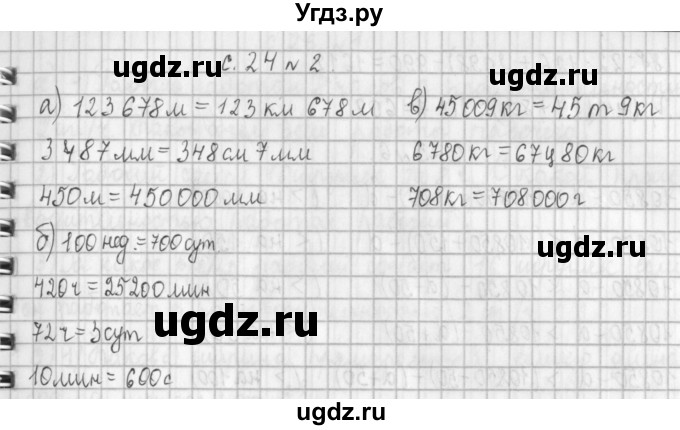 Угдз.ру
с. 24 № 2
а) 123 678 м = 123 км 678 м
3 487 мм = 348 см 7 мм
450 м = 450 000 мм
б) 100 нед. = 700 сут
420 ч = 25200 мин
72 ч = 3 сут
10 мин = 600 с
в) 45 009 кг = 45 т 9 кг
6 780 кг = 67 ц 80 кг
708 кг = 708 000 г
ugdz.ru
ugdz.ru
ugdz.ru
ugdz.ru
ugdz.ru
ugdz.ru